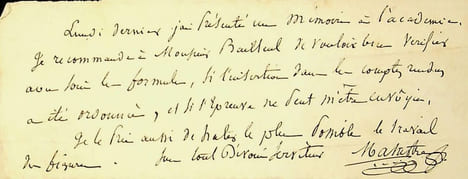 Lundi dernier j'ai présenté un Mémoire à l'académie.
Je recommande à Monsieur Bailleul de vouloir bien Vérifier
avec soin les formules, si l'insertion dans les comptes rendus
a été ordonnée, et si l'épreuve ne peut m'être envoyée,
Je le prie aussi de hater le plus possible le travail
des figures. Son tout Dévoué serviteur